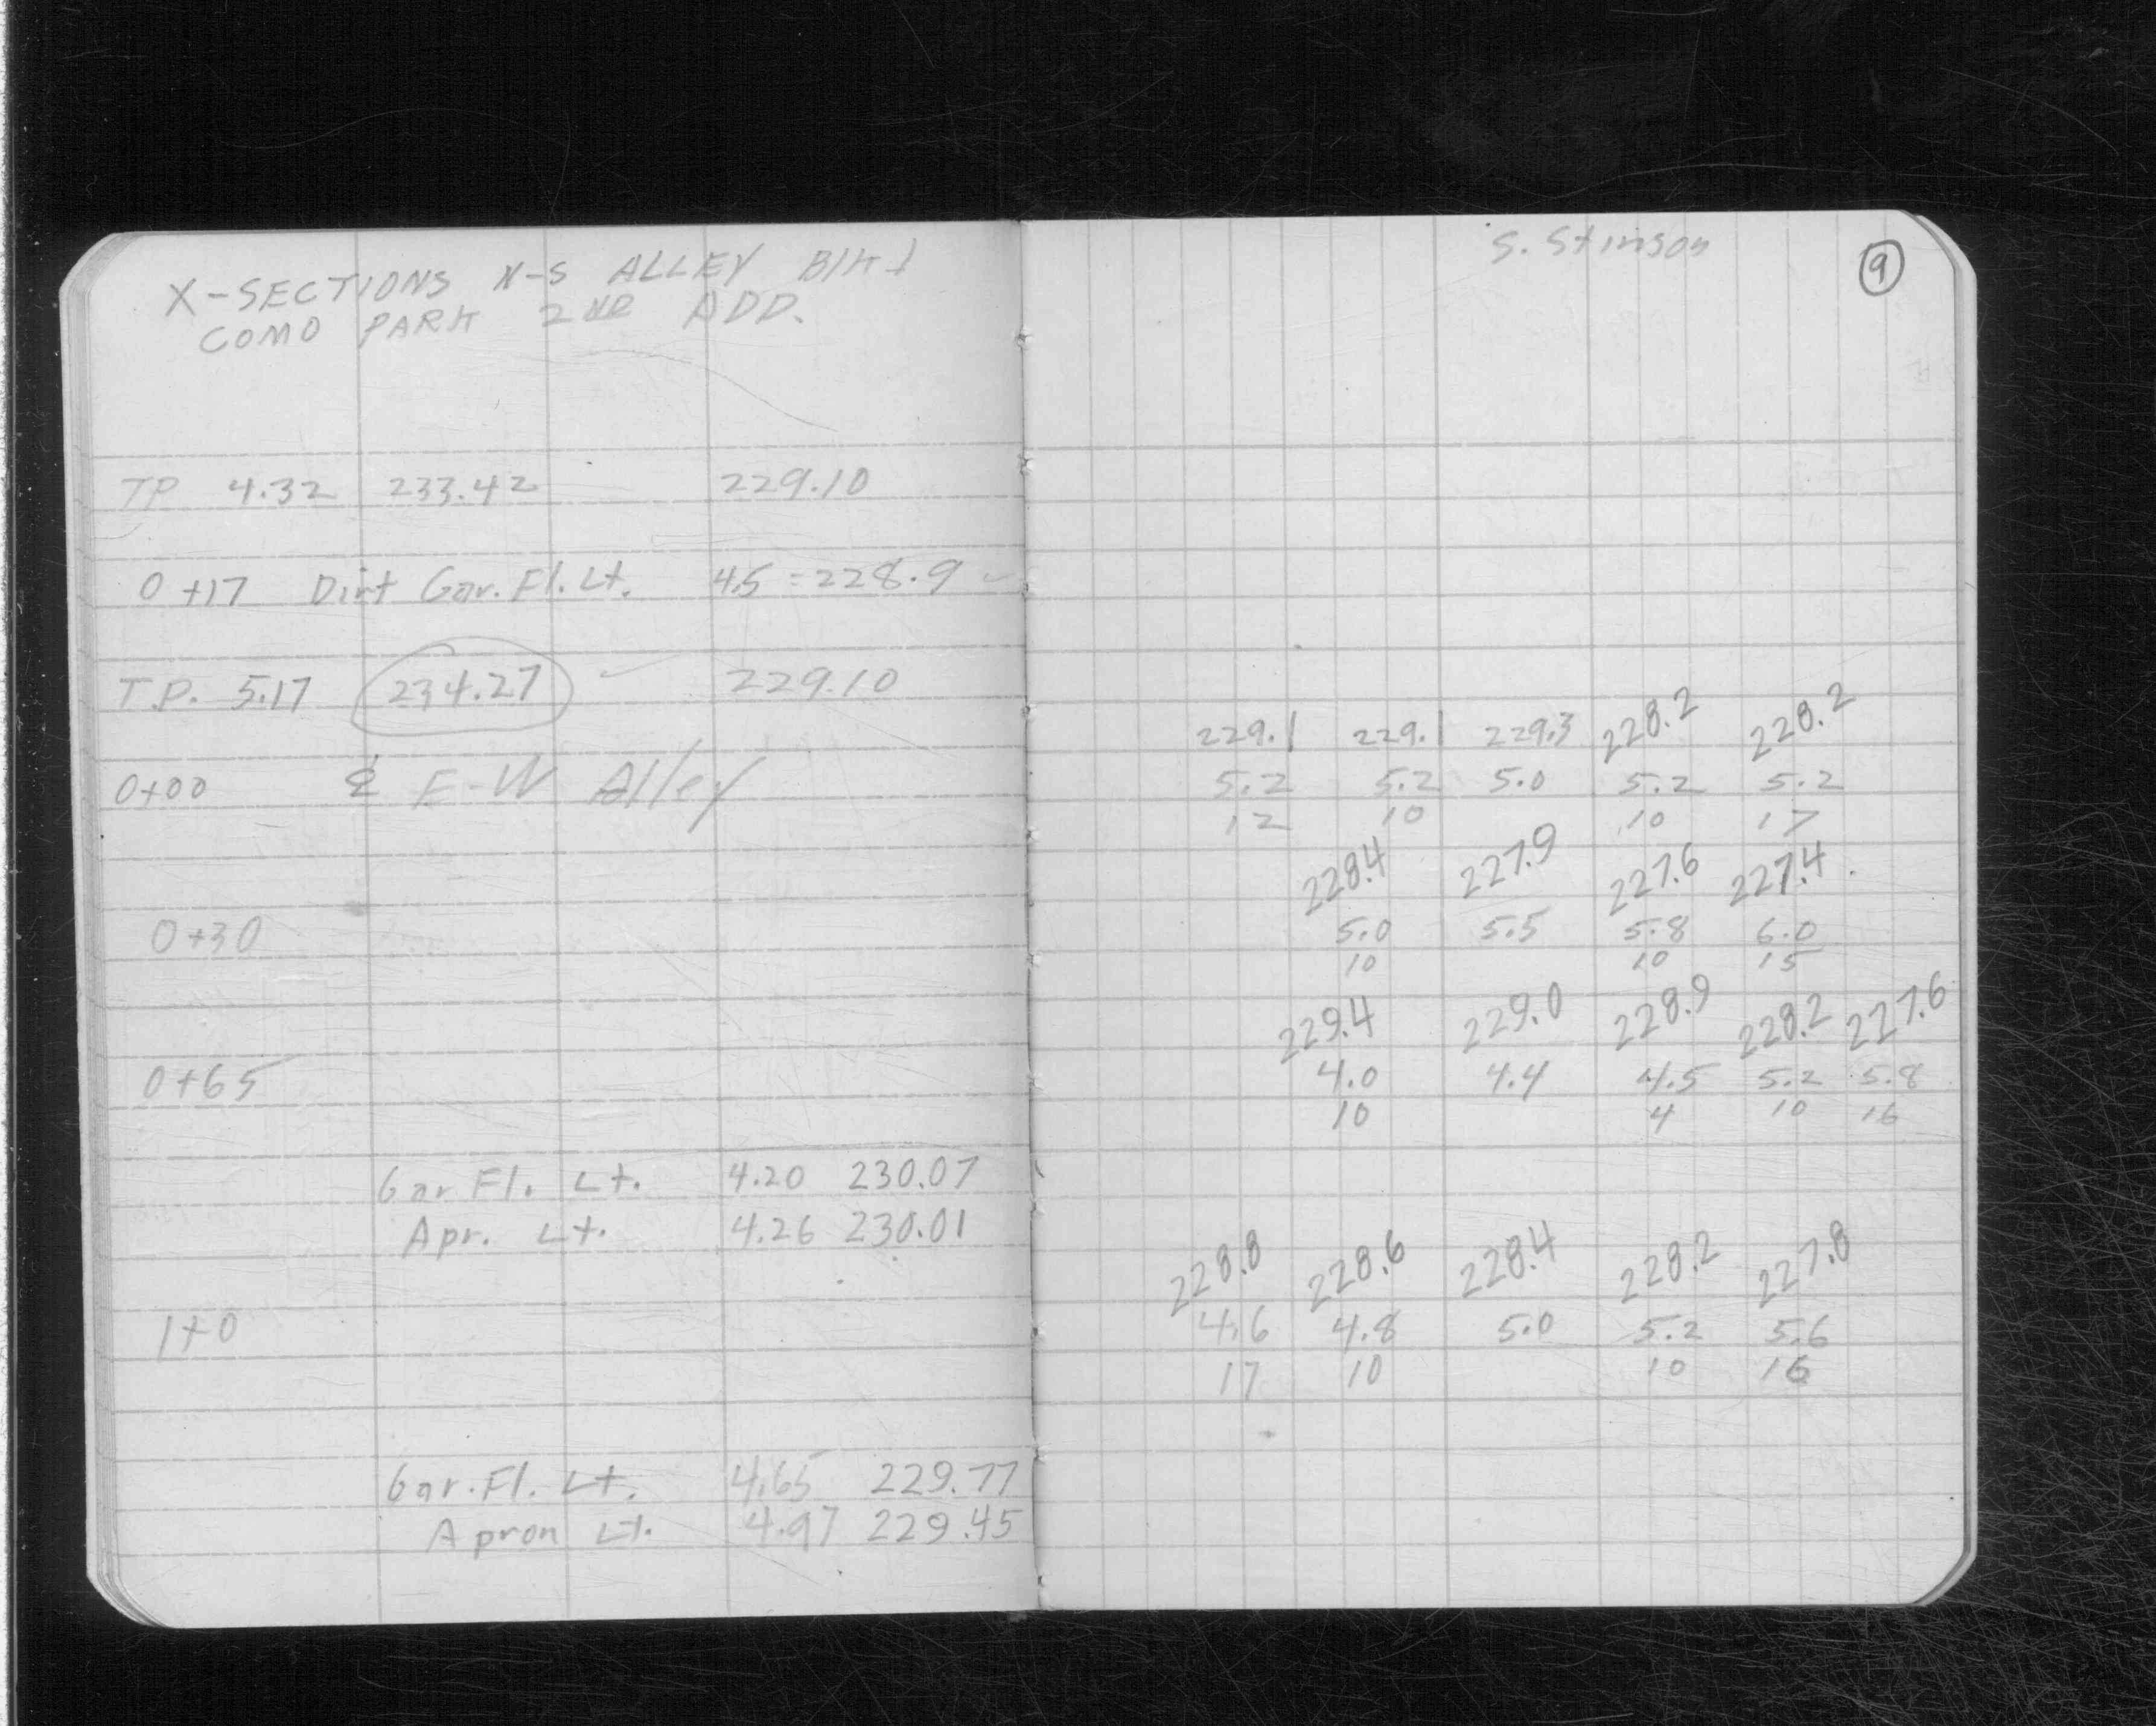 X-SECTIONS N-S ALLEY Blk 1
COMO PARK 2ND ADD.
TP 4.32 233.42 229.10
0+17 Dirt Gar. Fl. Lt. 4.5 = 228.9 ✓
T.P. 5.17 234.27 ✓ 229.10
0+00 ℄ E-W Alley
0+30
0+65
Gar Fl. Lt. 4.20 230.07
Apr. Lt. 4.26 230.01
1+0
Gar. Fl. Lt. 4.65 229.77
Apron Lt. 4.97 229.45
S. Stinson
9
229.1 229.1 229.3 228.2 228.2
5.2 5.2 5.0 5.2 5.2
12 10 10 17
228.4 227.9 227.6 227.4
5.0 5.5 5.8 6.0
10 10 15
229.4 229.0 228.9 228.2 227.6
4.0 4.4 4.5 5.2 5.8
10 4 10 16
228.8 228.6 228.4 228.2 227.8
4.6 4.8 5.0 5.2 5.6
17 10 10 16